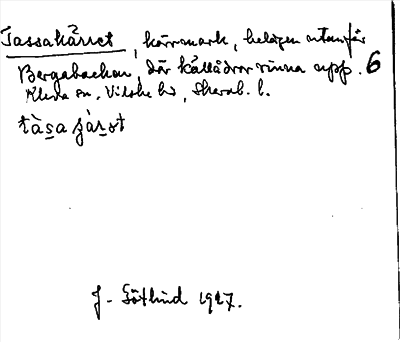 Tassakärret, kärrmark, belägen utanför
Bergabacken, där källådror rinna upp. 6
Kleva sn, Vilske hd, Skarab. l.
tàsa
J. Götlind 1927.